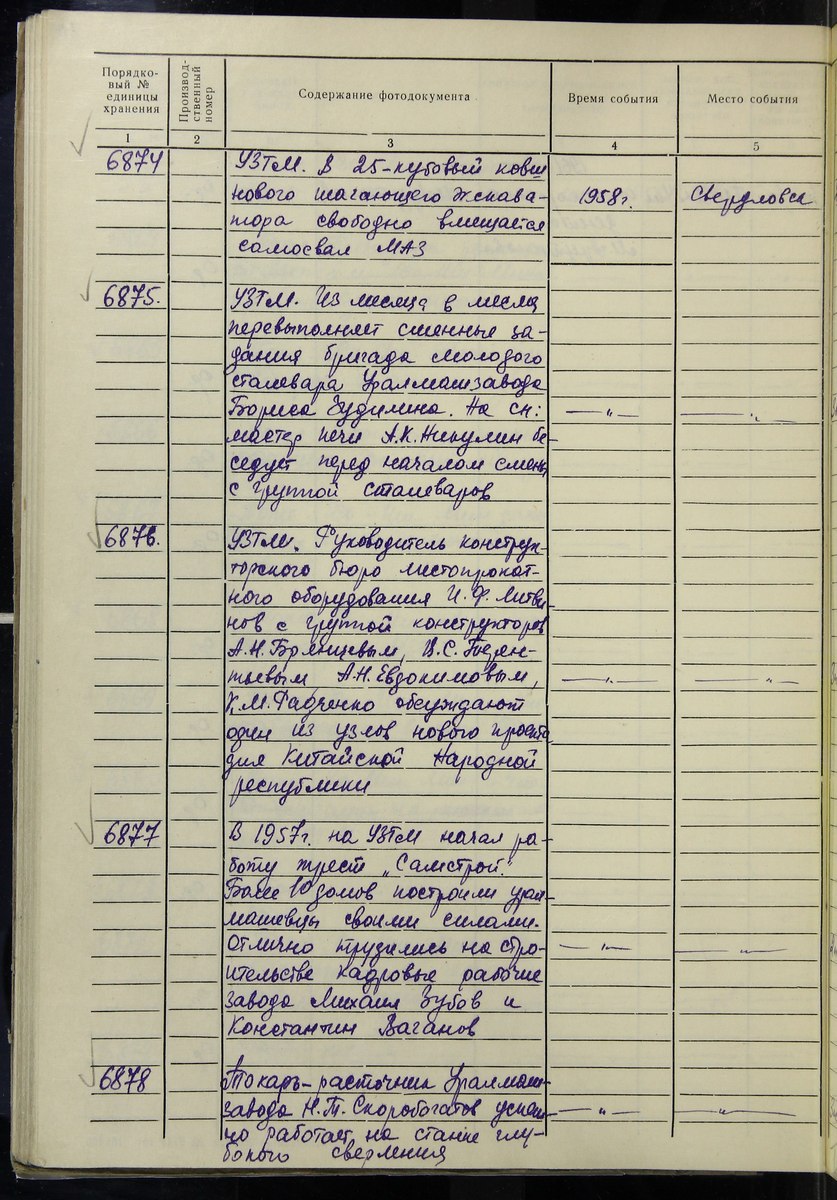 Порядко-
вый №
единицы
хранения
Производ-
ственный
номер
Содержание фотодокумента
Время события
Место события
1
2
3
4
5
6874
УЗТМ. В 25-кубовый ковш
нового шагающего экскава-
1958г.
Свердловск
тора свободно вмещается
самосвал МАЗ
6875.
УЗТМ. Из месяца в месяц
перевыполняет сменные за-
дания бригада молодого
сталевара Уралмашзавода
Бориса Гудилина. На сн:
—„—
—„—
мастер печи А.К.Никулин бе-
седует перед началом смены
с группой сталеваров
6876.
УЗТМ. Руководитель конструк-
торского бюро листопрокат-
ного оборудования И.Ф. Литви-
нов с группой конструкторов
А.Н.Брянцевым, В.С. Терен-
тьевым А.Н.Евдокимовым,
—„—
—„—
К.М.Радченко обсуждают
один из узлов нового проекта
для Китайской Народной
республики
6877
В 1957г. на УЗТМ начал ра-
боту трест „Самстрой".
Более 10 домов построили урал-
машевцы своими силами.
Отлично трудились на стро-
—„—
—„—
ительстве кадровые рабочие
завода Михаил Зубов и
Константин Ваганов
6878
Токарь-расточник Уралмаш-
завода Н.Т.Скоробогатов успеш-
—„—
—„—
но работает на станке глу-
бокого сверления